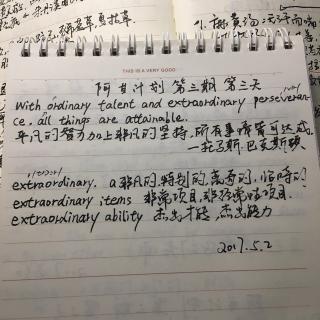 THIS IS A VERY GOOD
阿甘计划 第三期 第三天
With ordinary talent and extraordinary perseveran-
ce. all things are attainable.
平凡的智力加上非凡的坚持,所有事情皆可达成。
—托马斯.巴克斯顿
extraordinary. a 非凡的,特别的,离奇的,临时的
extraordinary items 非常项目,非经常项目.
extraordinary ability 杰出才能,杰出能力
2017.5.2